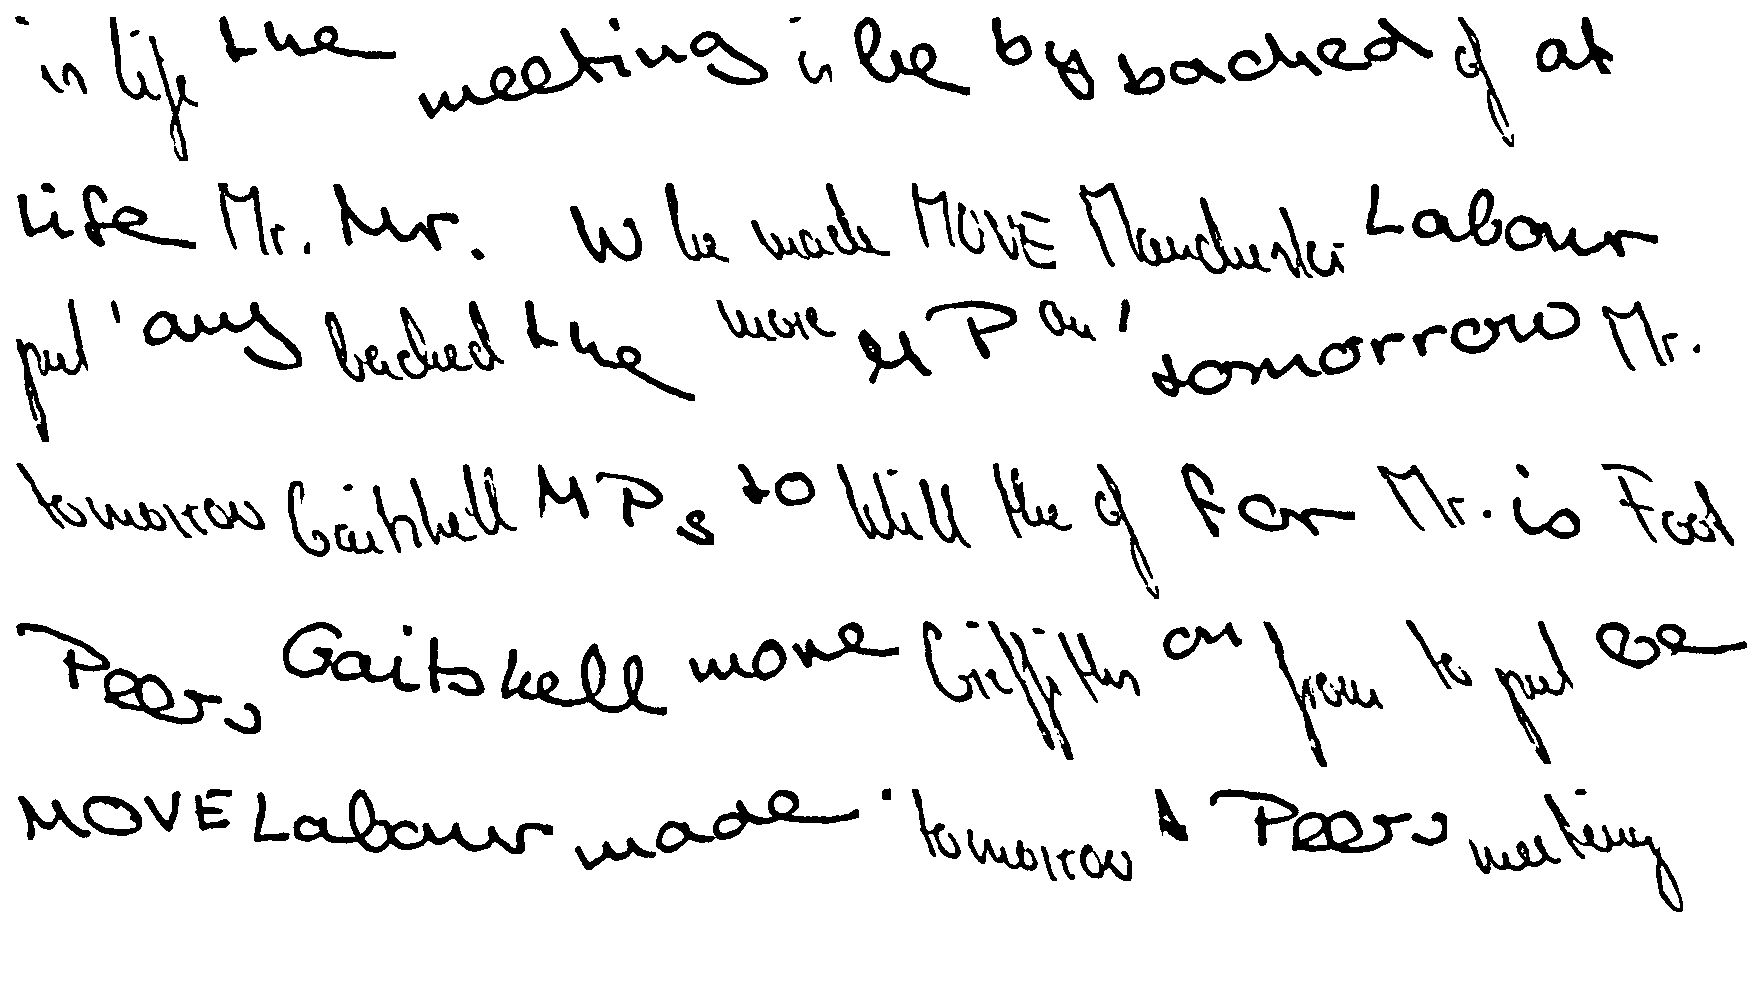 in life the meeting is be by backed of at
life Mr. Mr. W be made MOVE Manchester Labour
put ' any backed the more MP on ' tomorrow Mr.
tomorrow Gaitskell MPs to Will the of for Mr. is Foot
Peers Gaitskell more Griffiths on from to put be
MOVE Labour made ' tomorrow Peers meeting